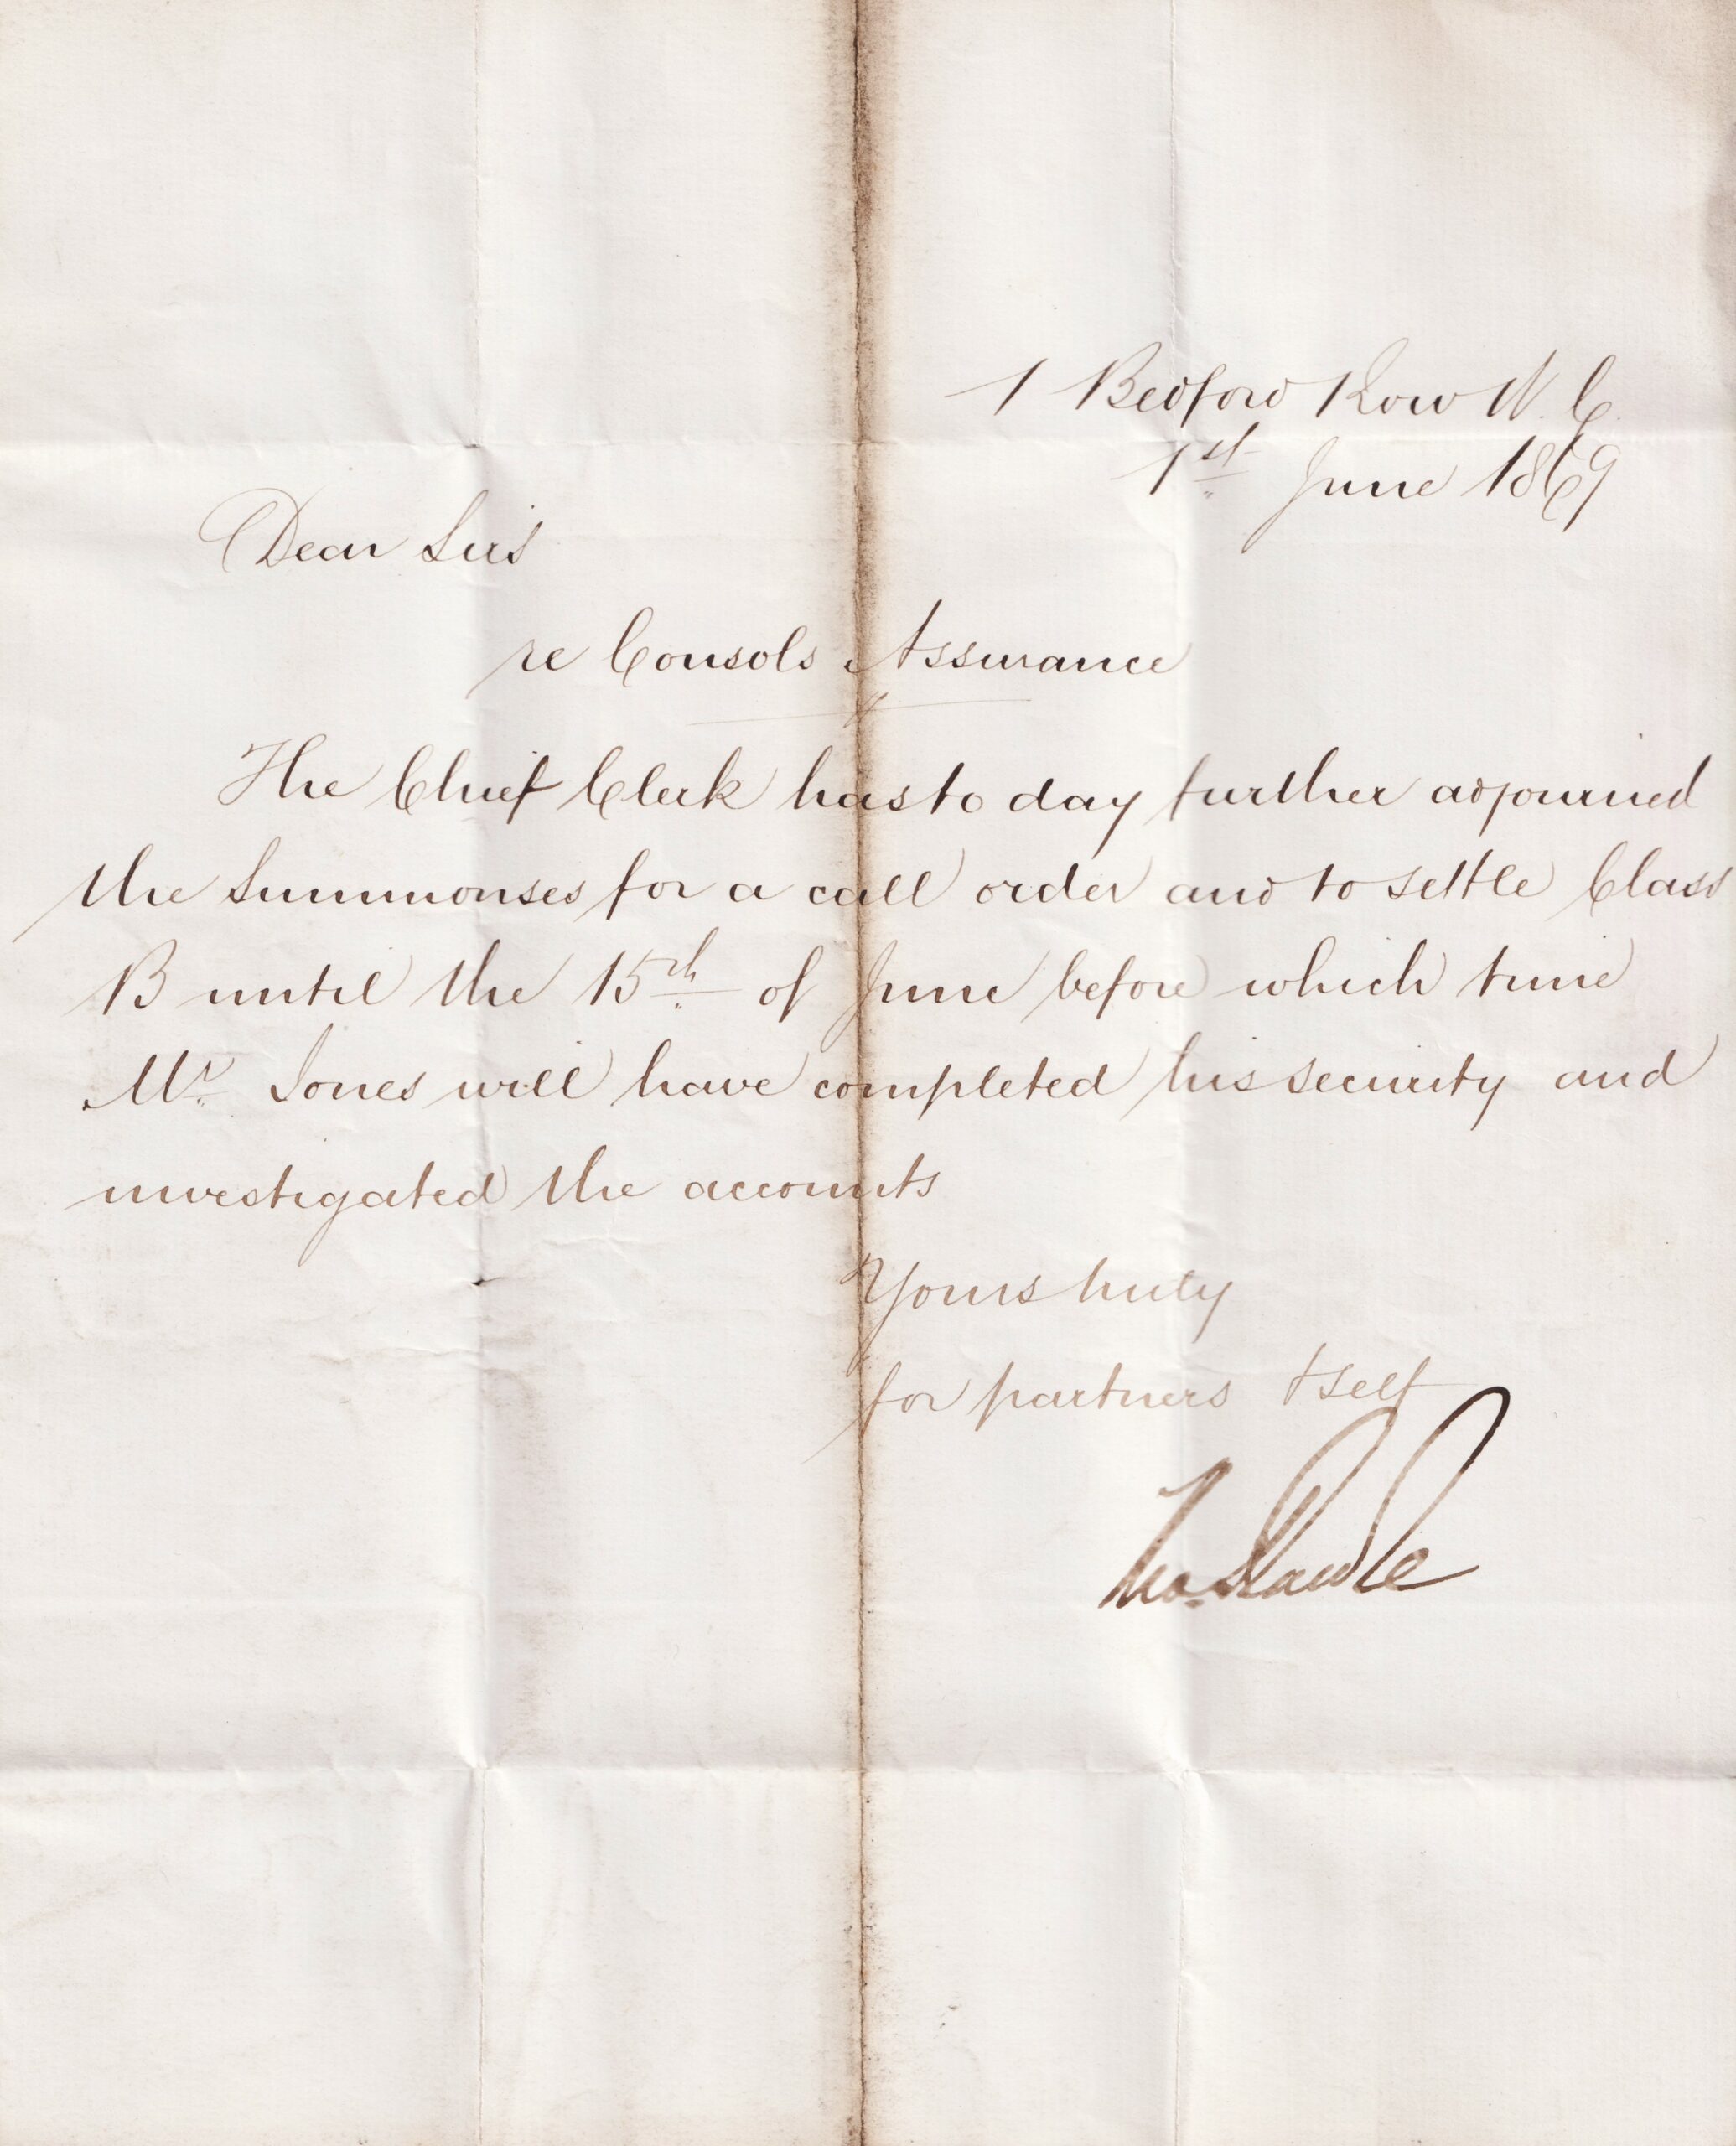 1 Bedford Row W.C.
1st June 1869
Dear Sirs
re Consols Assurance
The Chief Clerk has to day further adjourned
the Summonses for a call order and to settle Class
B until the 15th of June before which time
Mr. Jones will have completed his security and
investigated the accounts
Yours truly
for partners & self
Thos. Rawle